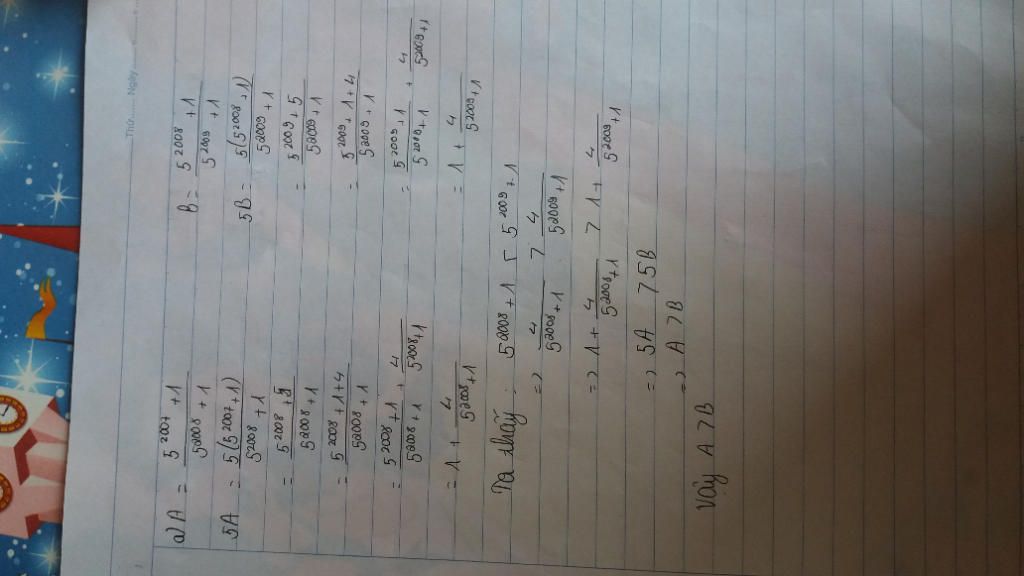 Thứ....... Ngày
a) A = \frac{5^{2007} + 1}{5^{2008} + 1} B = \frac{5^{2008} + 1}{5^{2009} + 1}
5A = \frac{5(5^{2007} + 1)}{5^{2008} + 1} 5B = \frac{5(5^{2008} + 1)}{5^{2009} + 1}
= \frac{5^{2008} + 5}{5^{2008} + 1} = \frac{5^{2009} + 5}{5^{2009} + 1}
= \frac{5^{2008} + 1 + 4}{5^{2008} + 1} = \frac{5^{2009} + 1 + 4}{5^{2009} + 1}
= \frac{5^{2008} + 1}{5^{2008} + 1} + \frac{4}{5^{2008} + 1} = \frac{5^{2009} + 1}{5^{2009} + 1} + \frac{4}{5^{2009} + 1}
= 1 + \frac{4}{5^{2008} + 1} = 1 + \frac{4}{5^{2009} + 1}
Ta thấy : 5^{2008} + 1 < 5^{2009} + 1
=> \frac{4}{5^{2008} + 1} > \frac{4}{5^{2009} + 1}
=> 1 + \frac{4}{5^{2008} + 1} > 1 + \frac{4}{5^{2009} + 1}
=> 5A > 5B
=> A > B
Vậy A > B